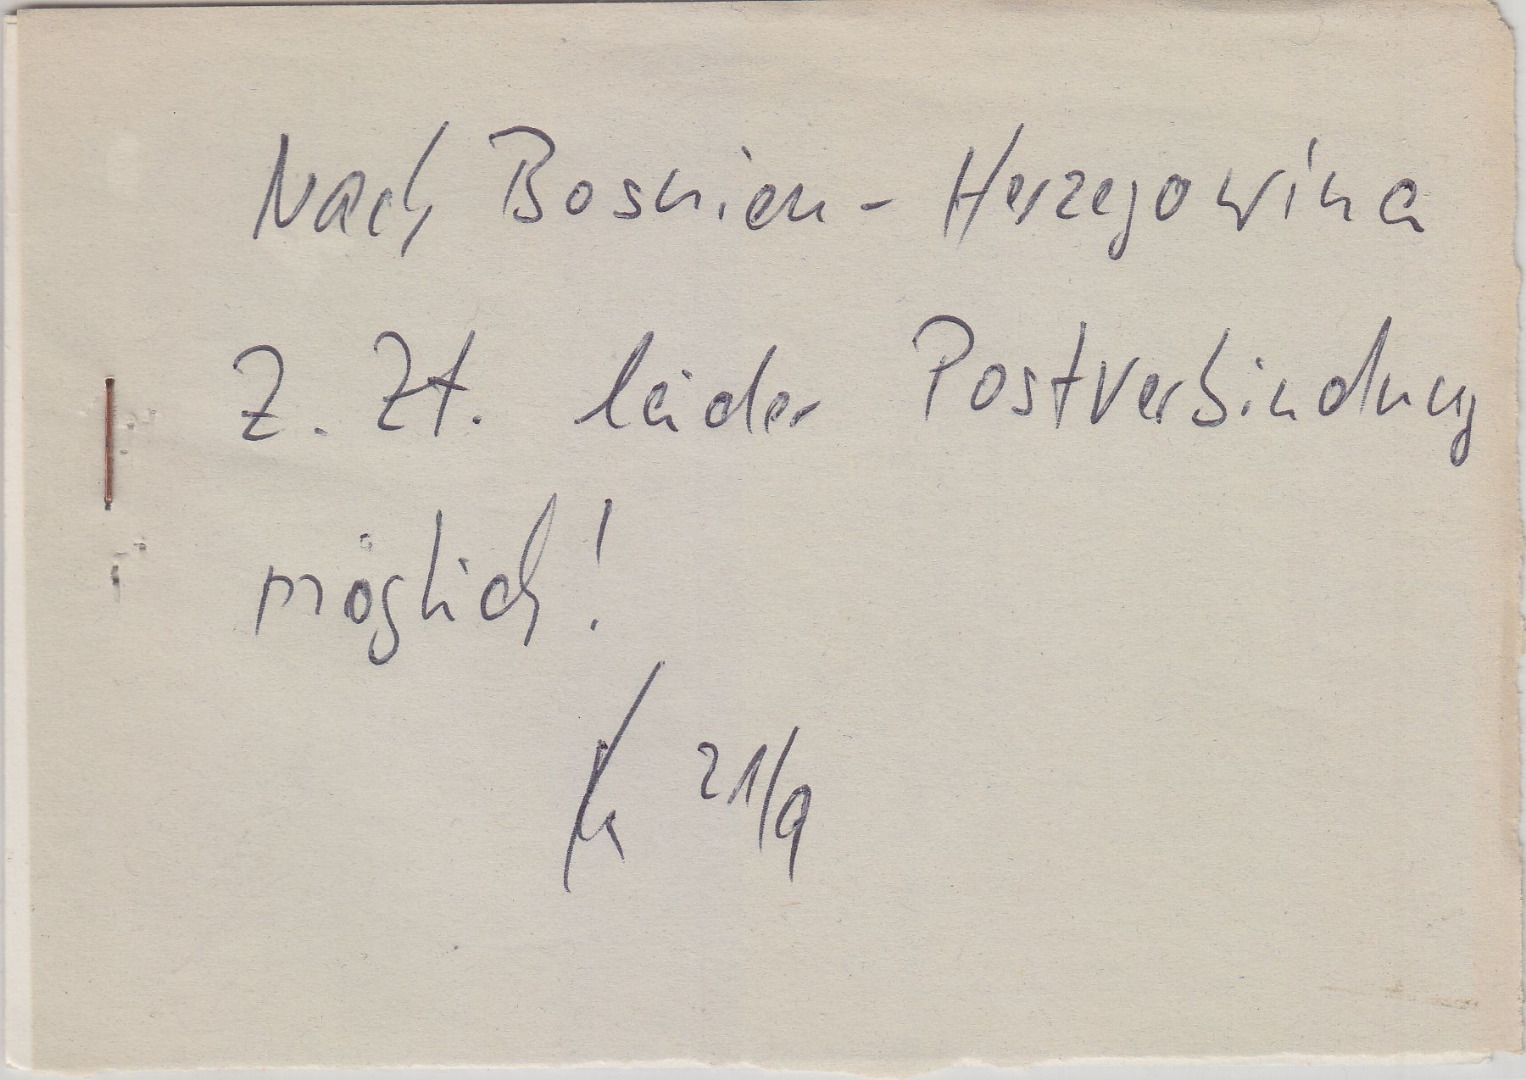 Nach Bosnien - Herzegowina
z. Zt. leider Postverbindung
möglich!
21/9